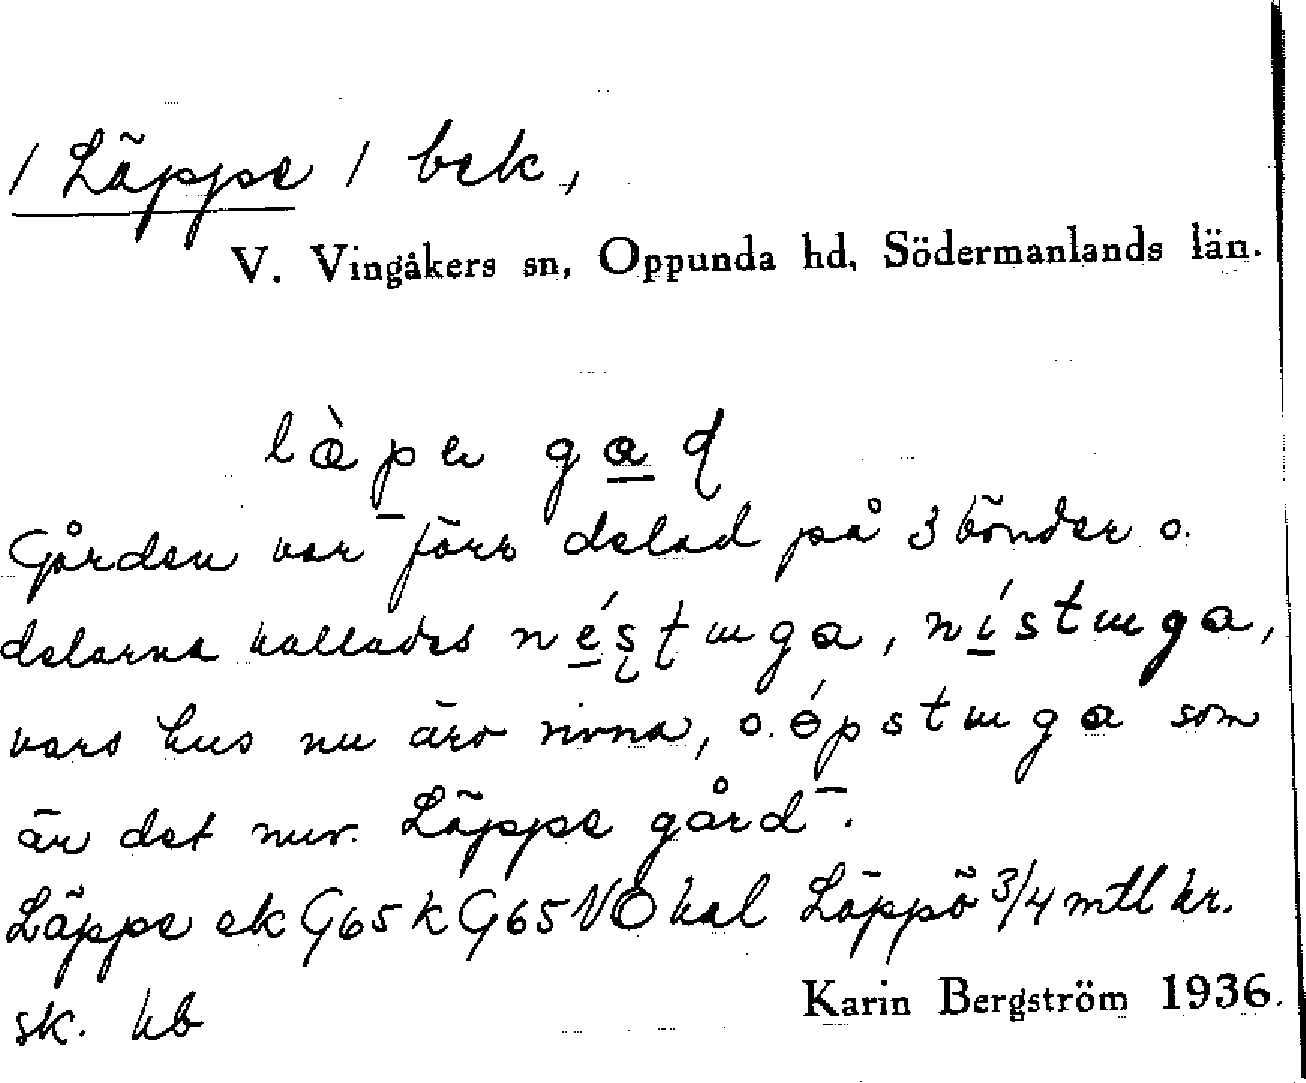 / Läppe / bek,
V. Vingåkers sn, Oppunda hd, Södermanlands län.
læ̀pe gaɖ
Gården var förr delad på 3 bönder o.
delarna kallades néstuga, nístuga,
vars hus nu äro rivna, o. ópstuga som
är det nuv. Läppe gård.
Läppe ek G65 k G65NÖ kal Läppö 3/4 mtl kr.
sk. kb
Karin Bergström 1936.